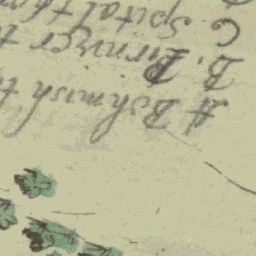 A Böhmisch t
B. Pirnizer t
C Spital thor